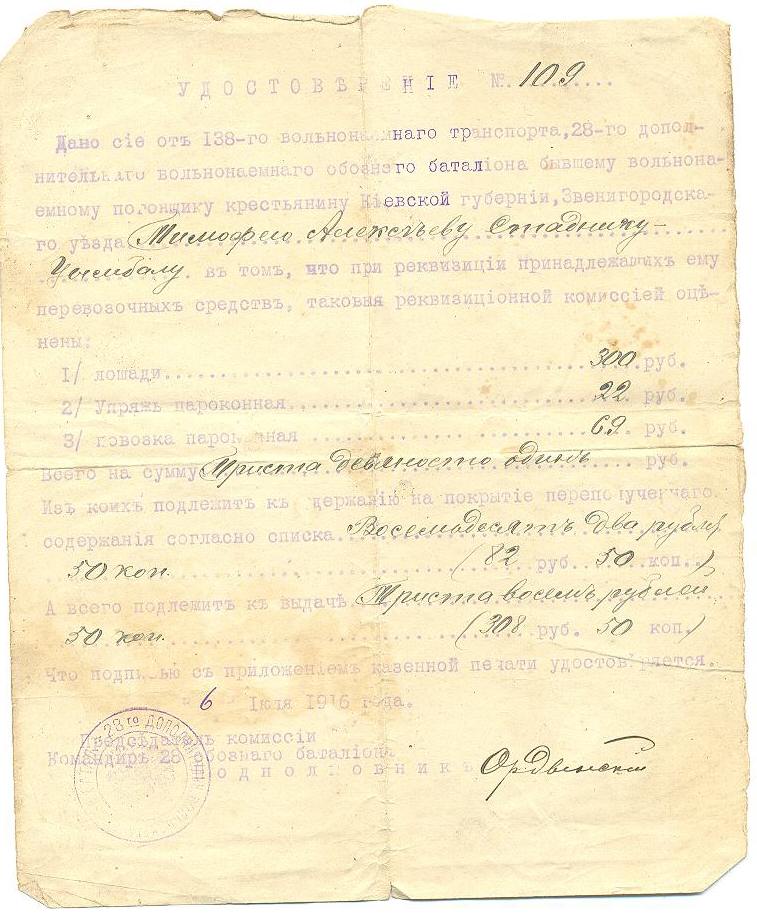 УДОСТОВѢРЕНІЕ № 109
Дано сіе отъ 138-го вольнонаемнаго транспорта, 28-го допол-
нительнаго вольнонаемнаго обознаго баталіона бывшему вольнона-
емному погонщику крестьянину Кіевской губерніи, Звенигородска-
го уѣзда Тимофею Алексѣеву Стаднику-
Цымбалу въ томъ, что при реквизиціи принадлежащихъ ему
перевозочныхъ средствъ, таковыя реквизиціонной комиссіей оцѣ-
нены:
1/ лошади 300 руб.
2/ Упряжь пароконная 22 руб.
3/ повозка пароконная 69 руб.
Всего на сумму Триста девяносто одинъ руб.
Изъ коихъ подлежитъ къ держанію на покрытіе переполученнаго
содержанія согласно списка Восемьдесятъ два рубля
50 коп. (82 руб. 50 коп.)
А всего подлежитъ къ выдачѣ Триста восемь рублей
50 коп. (308 руб. 50 коп.)
Что подписью съ приложеніемъ казенной печати удостовѣряется.
6 Іюля 1916 года.
Предсѣдатель комиссіи
Командиръ 28 обознаго баталіона
одполковникъ
28го ДОПОЛНИТЕЛЬН